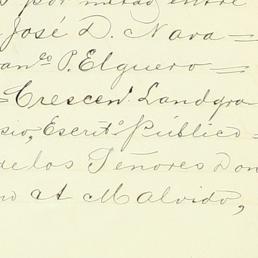 por mitad entre
José D. Nava
an.co P. Elguero
Crescen.o Landgra
sio, Escrit.o Público
de los Señores Don
at M Alvido,